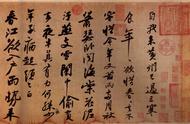 自我來黃州已過三寒
食年〻欲惜春春去不
容惜今年又苦雨兩月秋
蕭瑟卧聞海棠花泥
汙燕支雪闇中偷負
去夜半真有力何殊少
年子病起頭已白
春江欲入户雨勢來